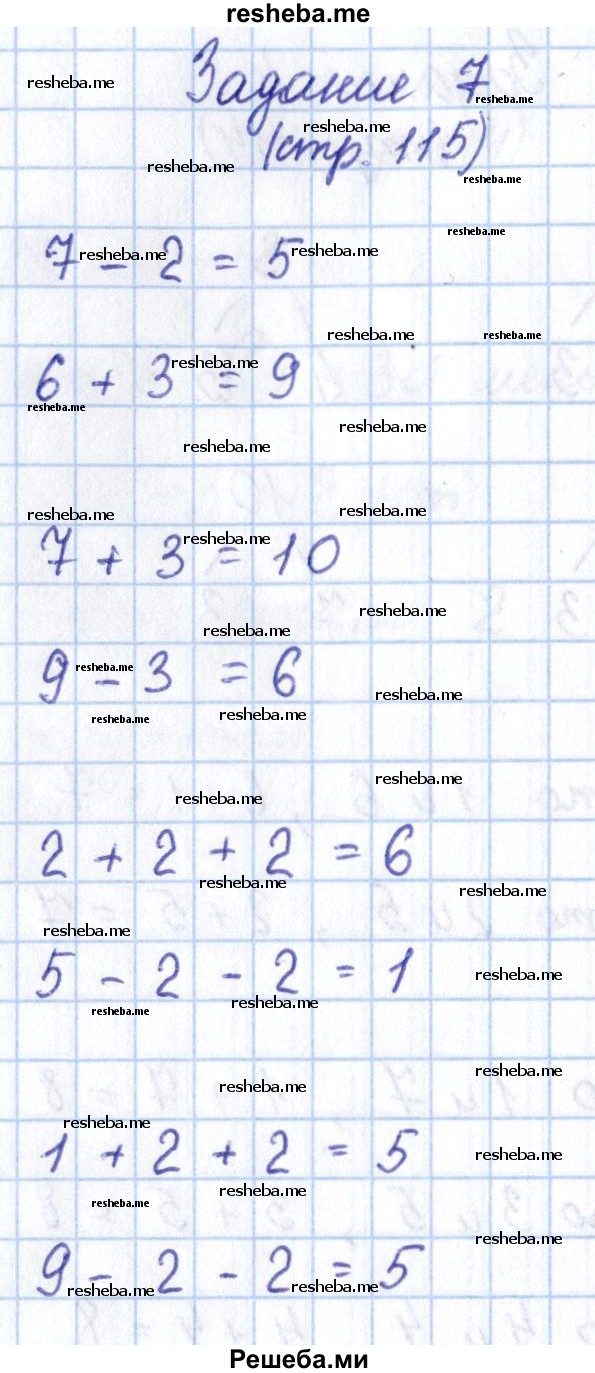 resheba.me
Задание 7
(стр. 115)
7 - 2 = 5
6 + 3 = 9
7 + 3 = 10
9 - 3 = 6
2 + 2 + 2 = 6
5 - 2 - 2 = 1
1 + 2 + 2 = 5
9 - 2 - 2 = 5
Решеба.ми